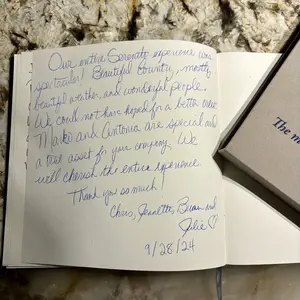 Our entire Serenity experience was
spectacular! Beautiful country, mostly
beautiful weather, and wonderful people.
We could not have hoped for a better
Mako and Antonia are special and
a real asset for your company. We
will cherish the entire experience.
Thank you so much!
Cheers, Jeanette, Brian and
Julie ♡
9/28/24
The m